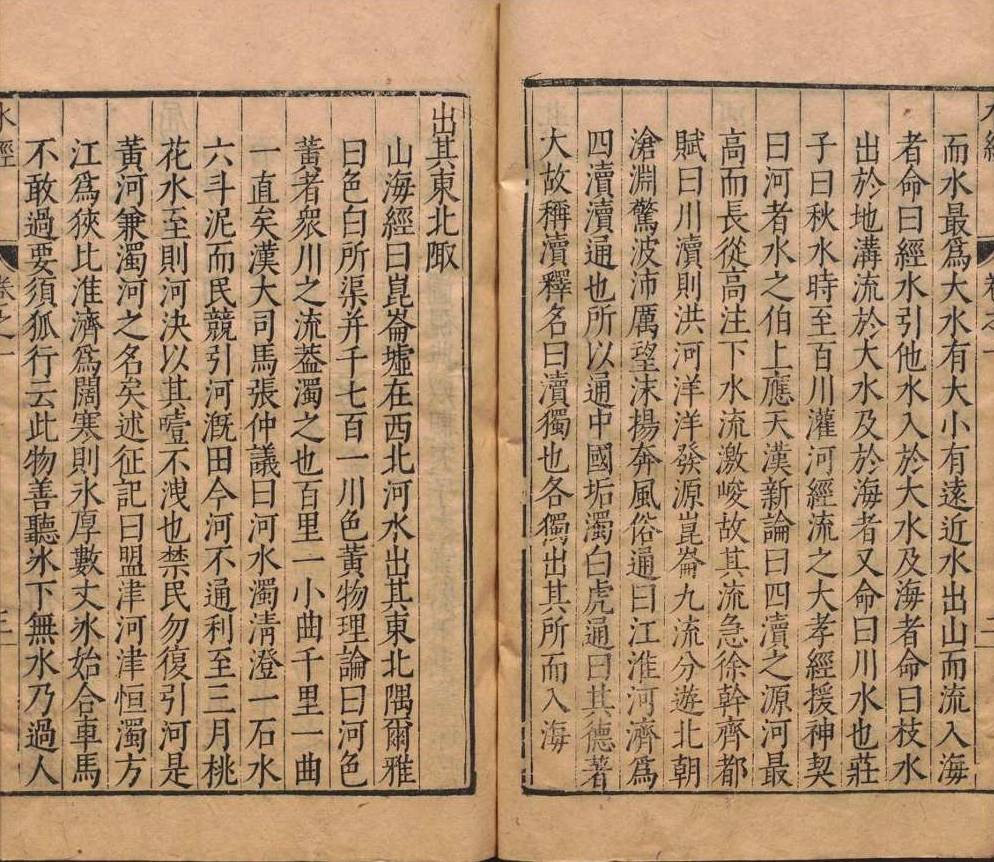 水經 卷之一 二
而水最爲大水有大小有遠近水出山而流入海
者命曰經水引他水入於大水及海者命曰枝水
出於地溝流於大水及於海者又命曰川水也莊
子曰秋水時至百川灌河經流之大孝經援神契
曰河者水之伯上應天漢新論曰四瀆之源河最
高而長從高注下水流激峻故其流急徐幹齊都
賦曰川瀆則洪河洋洋發源崑崙九流分遊北朝
滄淵驚波沛厲望沫揚奔風俗通曰江淮河濟爲
四瀆瀆通也所以通中國垢濁白虎通曰其德著
大故稱瀆釋名曰瀆獨也各獨出其所而入海
出其東北陬
山海經曰崑崙墟在西北河水出其東北隅爾雅
曰色白所渠并千七百一川色黃物理論曰河色
黃者衆川之流葢濁之也百里一小曲千里一曲
一直矣漢大司馬張仲議曰河水濁清澄一石水
六斗泥而民競引河漑田今河不通利至三月桃
花水至則河決以其噎不洩也禁民勿復引河是
黃河兼濁河之名矣述征記曰盟津河津恒濁方
江爲狹比准濟爲闊寒則氷厚數丈氷始合車馬
不敢過要須狐行云此物善聽氷下無水乃過人
水經 卷之一 三